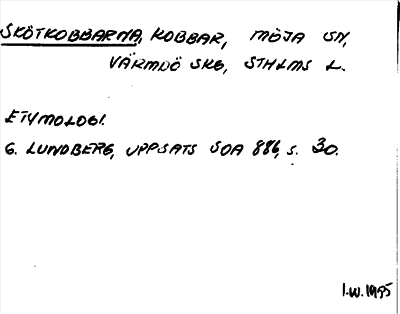 SKÖTKOBBARNA, KOBBAR, MÖJA SN,
VÄRMDÖ SKG, STHLMS L.
ETYMOLOGI.
G. LUNDBERG, UPPSATS SOA 886, S. 30.
I.W. 1995